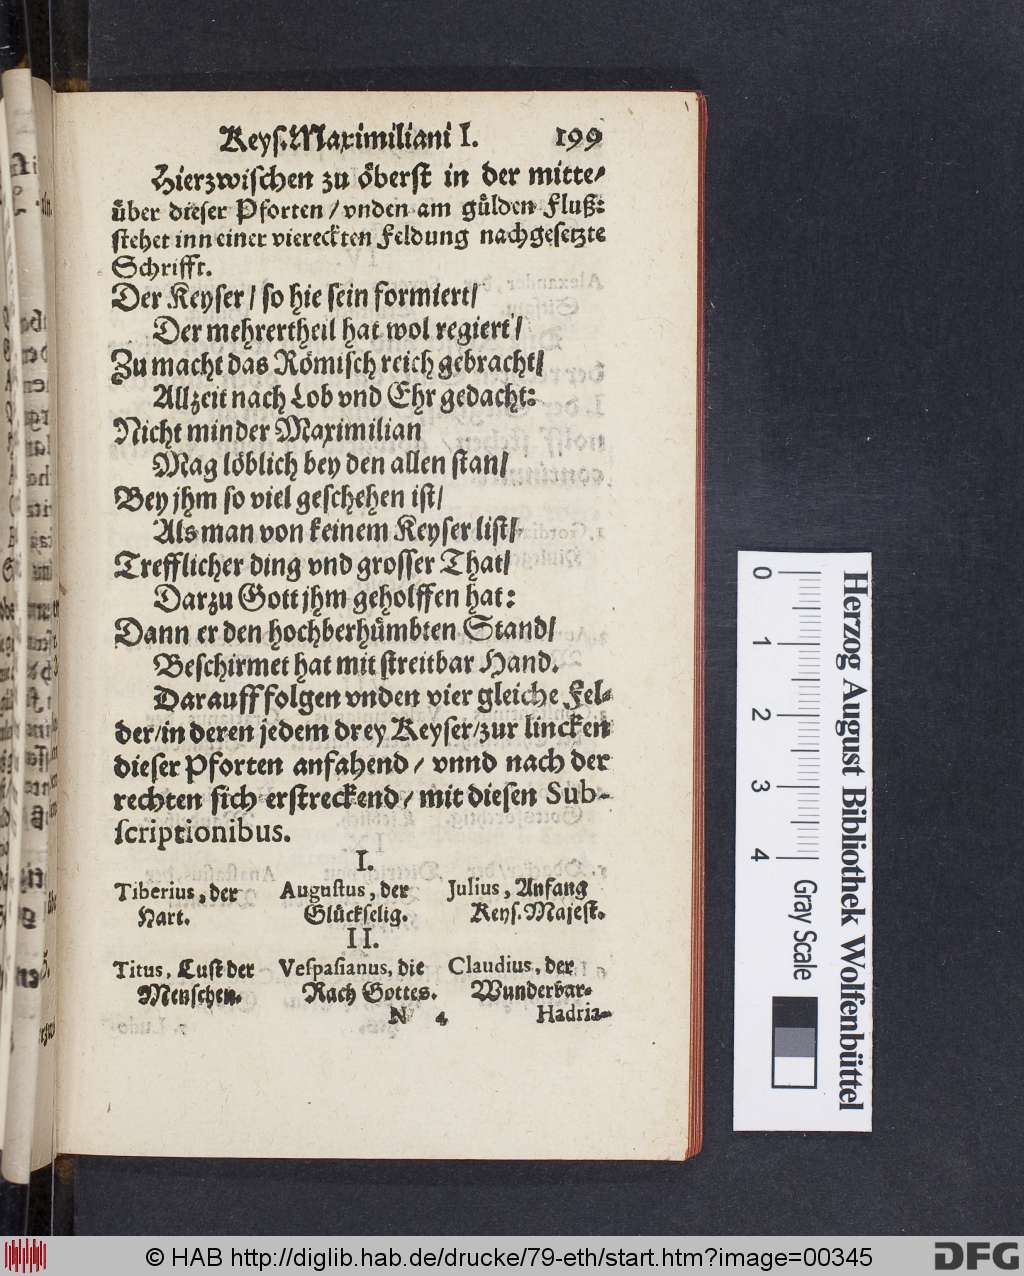 Keys. Maximiliani I. 199
Hierzwischen zu öberst in der mitte/
über dieser Pforten / vnden am gülden Fluß:
stehet inn einer viereckten Feldung nachgesetzte
Schrifft.
Der Keyser / so hie sein formiert /
Der mehrertheil hat wol regiert /
Zu macht das Römisch reich gebracht /
Allzeit nach Lob vnd Ehr gedacht:
Nicht minder Maximilian
Mag löblich bey den allen stan /
Bey jhm so viel geschehen ist /
Als man von keinem Keyser list /
Trefflicher ding vnd grosser That /
Darzu Gott jhm geholffen hat:
Dann er den hochberhümbten Stand /
Beschirmet hat mit streitbar Hand.
Darauff folgen vnden vier gleiche Fel-
der / in deren jedem drey Keyser / zur lincken
dieser Pforten anfahend / vnnd nach der
rechten sich erstreckend / mit diesen Sub-
scriptionibus.
I.
Tiberius, der Augustus, der Julius, Anfang
Hart. Glückselig. Keys. Majest.
II.
Titus, Lust der Vespasianus, die Claudius, der
Menschen. Rach Gottes. Wunderbar.
N 4 Hadria-
Herzog August Bibliothek Wolfenbüttel
0 1 2 3 4 Gray Scale
© HAB http://diglib.hab.de/drucke/79-eth/start.htm?image=00345
DFG